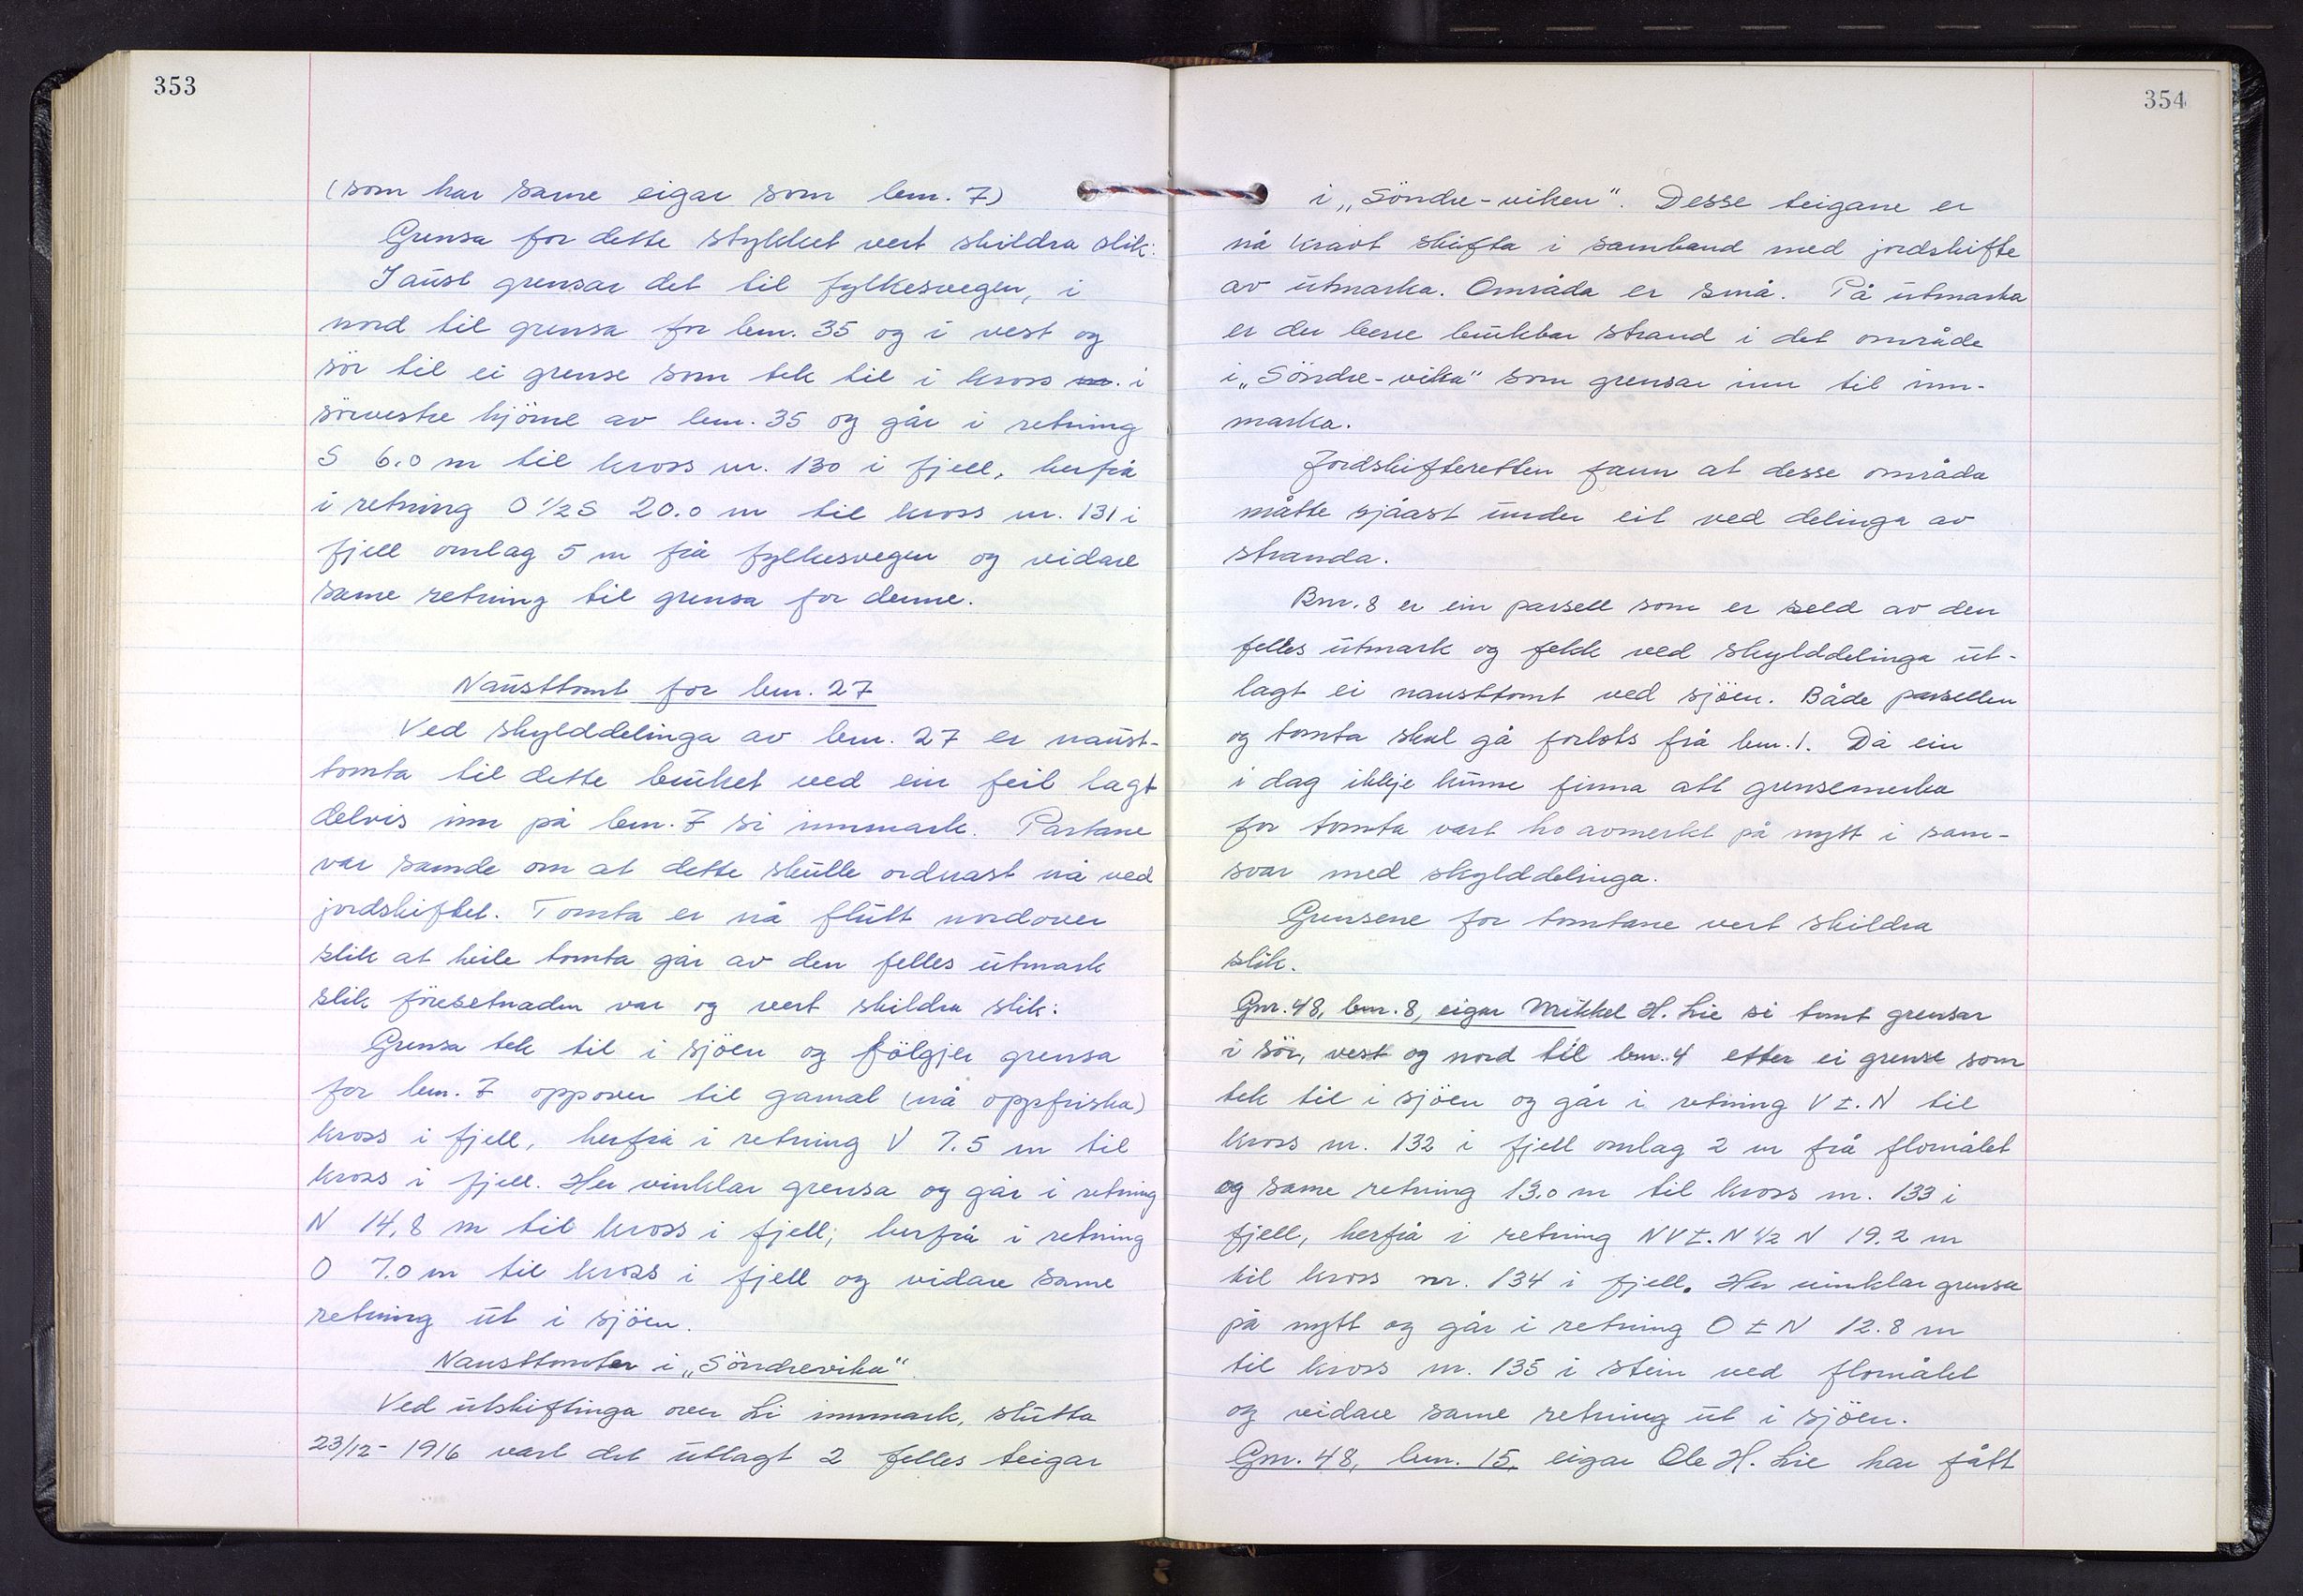 353
(som har same eigar som bnr. 7)
Grensa for dette stykket vert skildra slik:
I aust grensar det til fylkesvegen, i
nord til grensa for bnr. 35 og i vest og
sør til ei grense som tek til i kross nr. i
sørvestre hjörne av bnr. 35 og går i retning
S 6.0 m til kross nr. 130 i fjell, herfrå
i retning O ½ S 20.0 m til kross nr. 131 i
fjell omlag 5 m frå fylkesvegen og vidare
same retning til grensa for denne.
Nausttomt for bnr. 27
Ved skylddelinga av bnr. 27 er naust-
tomta til dette bruket ved ein feil lagt
delvis inn på bnr. 7 si innmark. Partane
var samde om at dette skulle ordnast nå ved
jordskiftet. Tomta er nå flutt nordover
slik at heile tomta går av den felles utmark
slik föresetnaden var og vert skildra slik:
Grensa tek til i sjöen og fölgjer grensa
for bnr. 7 oppover til gamal (nå oppfriska)
kross i fjell, herfrå i retning V 7.5 m til
kross i fjell. Her vinklar grensa og går i retning
N 14,8 m til kross i fjell; herfrå i retning
O 7.0 m til kross i fjell og vidare same
retning ut i sjöen.
Nausttomter i „Söndrevika".
Ved utskiftinga over Li innmark, slutta
23/12- 1916 vart det utlagt 2 felles teigar
354
i „Söndre-viken". Desse teigane er
nå kravt skifta i samband med jordskifte
av utmarka. Områda er små. På utmarka
er der berre brukbar strand i det område
i „Söndre-vika" som grensar inn til inn-
marka.
Jordskifteretten fann at desse områda
måtte sjåast under eit ved delinga av
stranda.
Bnr. 8 er ein parsell som er seld av den
felles utmark og fekk ved skylddelinga ut-
lagt ei nausttomt ved sjöen. Både parsellen
og tomta skal gå forlots frå bnr. 1. Då ein
i dag ikkje kunne finna att grensemerka
for tomta vart ho avmerkt på nytt i sam-
svar med skylddelinga.
Grensene for tomtane vert skildra
slik.
Gnr. 48, bnr. 8, eigar Mikkel H. Lie si tomt grensar
i sör, vest og nord til bnr. 4 etter ei grense som
tek til i sjöen og går i retning V t. N til
kross nr. 132 i fjell omlag 2 m frå flomålet
og same retning 13.0 m til kross nr. 133 i
fjell, herfrå i retning NV t. N ½ N 19.2 m
til kross nr. 134 i fjell. Her vinklar grensa
på nytt og går i retning O t N 12.8 m
til kross nr. 135 i stein ved flomålet
og vidare same retning ut i sjöen.
Gnr. 48, bnr. 15, eigar Ole H. Lie har fått